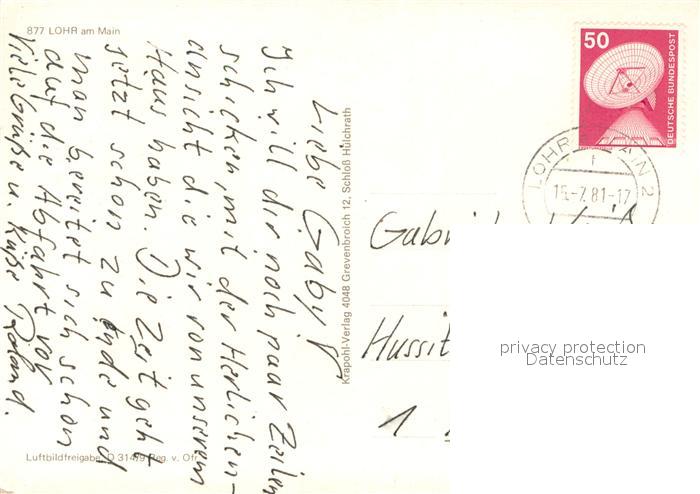 877 LOHR am Main
Liebe Gaby!
Ich will dir noch paar Zeilen
schicken, mit der Herlichen-
ansicht die wir von unserem
Haus haben. Die Zeit geht
jetzt schon zu Ende und
man bereitet sich schon
auf die Abfahrt vor
Viele Grüße u. Küße Roland.
Luftbildfreigabe: D 314/9 Reg. v. Ofr.
Krapohl-Verlag 4048 Grevenbroich 12, Schloß Hülchrath
50
DEUTSCHE BUNDESPOST
LOHR MAIN 2
15.-7.81-17
Hussit
1
privacy protection
Datenschutz